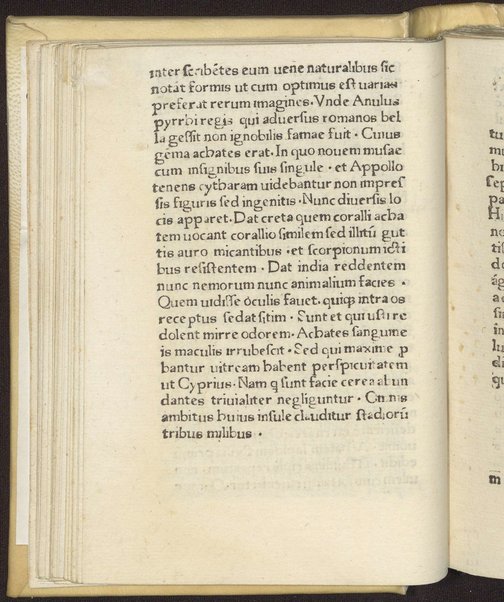 inter scribētes eum uene naturalibus sic
notāt formis ut cum optimus est uarias
preferat rerum imagines · Vnde Anulus
pyrrhi regis qui aduersus romanos bel
la gessit non ignobilis famae fuit · Cuius
gēma achates erat · In quo nouem musae
cum insignibus suis singule · et Appollo
tenens cytharam uidebantur non impres
sis figuris sed ingenitis · Nunc diuersis lo
cis apparet · Dat creta quem coralli acha
tem uocant corallio similem sed illitū gut
tis auro micantibus · et scorpionum icti
bus resistentem · Dat india reddentem
nunc nemorum nunc animalium facies ·
Quem uidisse oculis fauet · quiqꝫ intra os
receptus sedat sitim · Sunt et qui usti re
dolent mirre odorem · Achates sanguine
is maculis irrubescit · Sed qui maxime ꝓ
bantur uitream habent perspicuitatem
ut Cyprius · Nam q̄ sunt facie cerea abun
dantes triuialiter negliguntur · Omnis
ambitus huius insule clauditur stadiorū
tribus milibus ·
tu
m